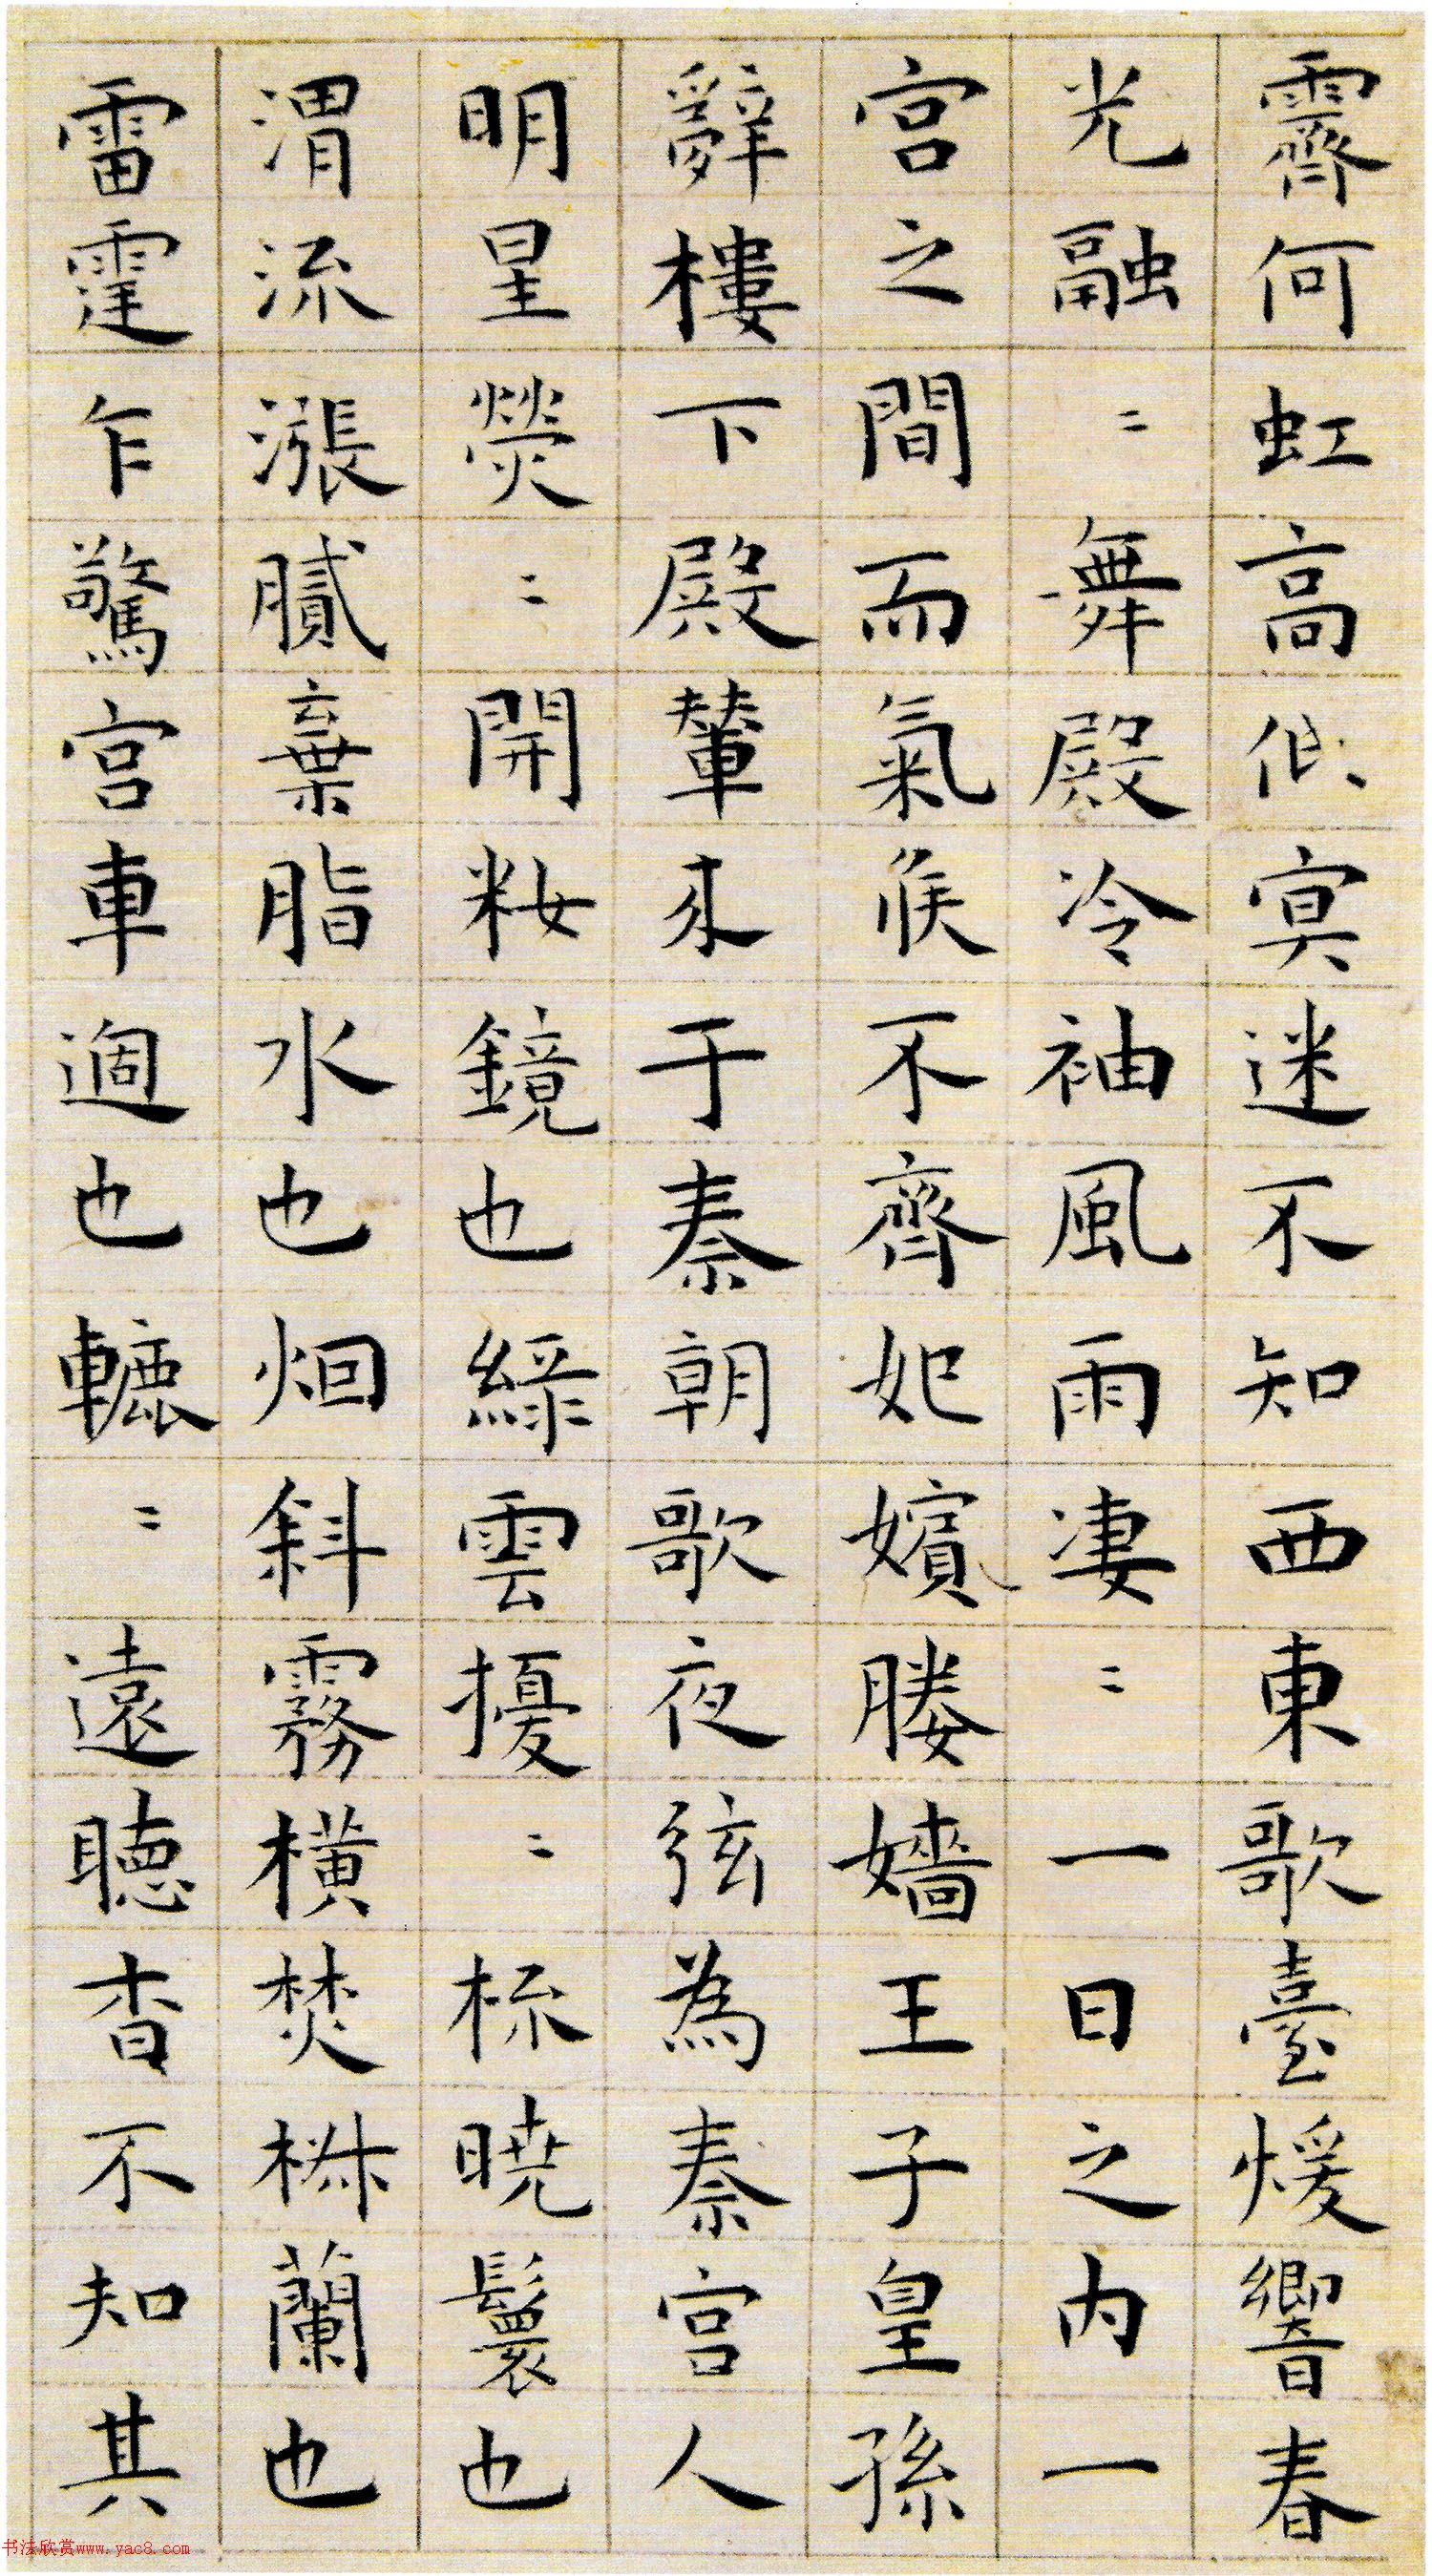 霽何虹高低㝠迷不知西東歌臺煖響春
光融〻舞殿冷袖風雨淒〻一日之内一
宮之間而氣候不齊妃嬪媵嬙王子皇孫
辭樓下殿輦來于秦朝歌夜弦為秦宮人
明星熒〻開粧鏡也綠雲擾〻梳曉鬟也
渭流漲膩棄脂水也烟斜霧橫焚椒蘭也
雷霆乍驚宮車過也轆〻遠聽杳不知其
书法欣赏www.yac8.com